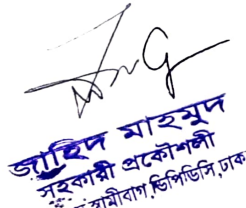 জাহিদ মাহমুদ
সহকারী প্রকৌশলী
স্বামীবাগ, ডিপিডিসি, ঢাকা